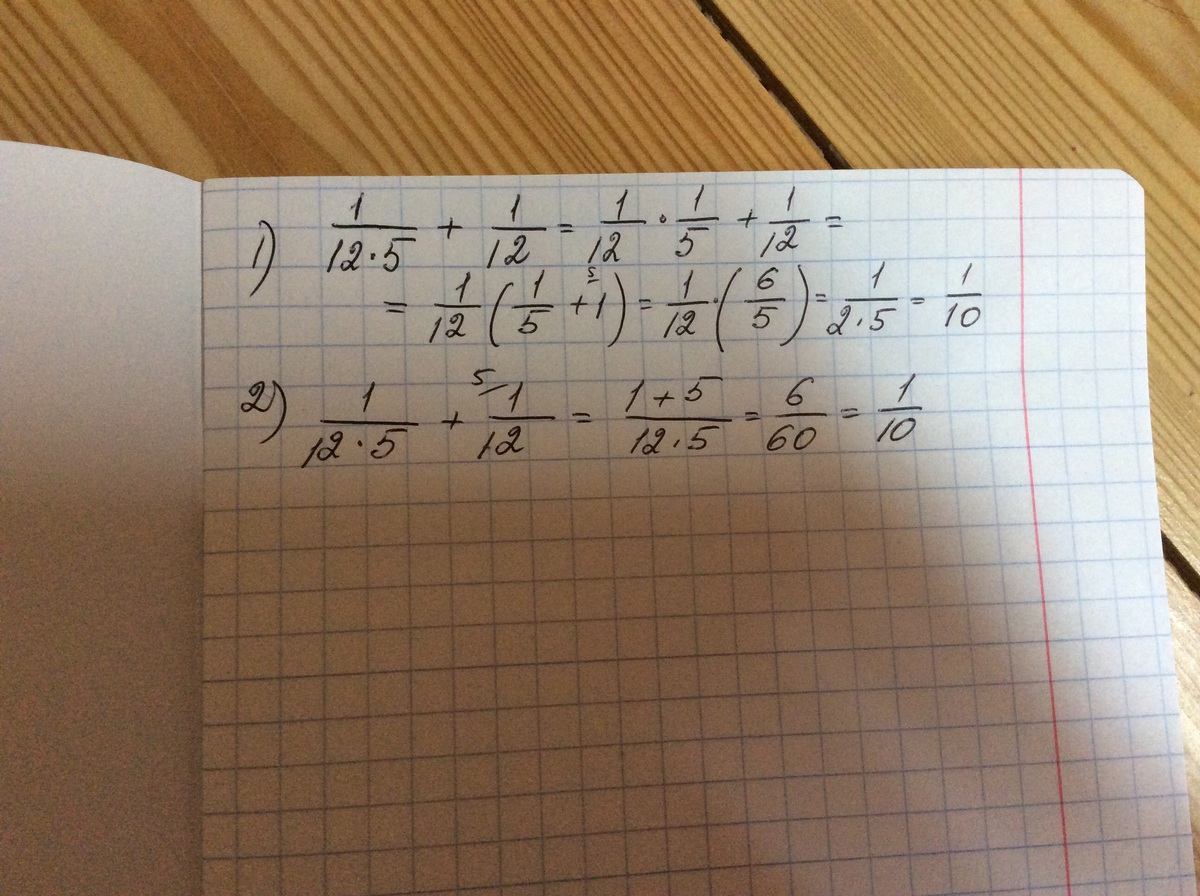 1) \frac{1}{12 \cdot 5} + \frac{1}{12} = \frac{1}{12} \cdot \frac{1}{5} + \frac{1}{12} =
= \frac{1}{12} \left( \frac{1}{5} + \overset{5}{1} \right) = \frac{1}{12} \cdot \left( \frac{6}{5} \right) = \frac{1}{2 \cdot 5} = \frac{1}{10}
2) \frac{1}{12 \cdot 5} + {}^{5/}\frac{1}{12} = \frac{1 + 5}{12 \cdot 5} = \frac{6}{60} = \frac{1}{10}